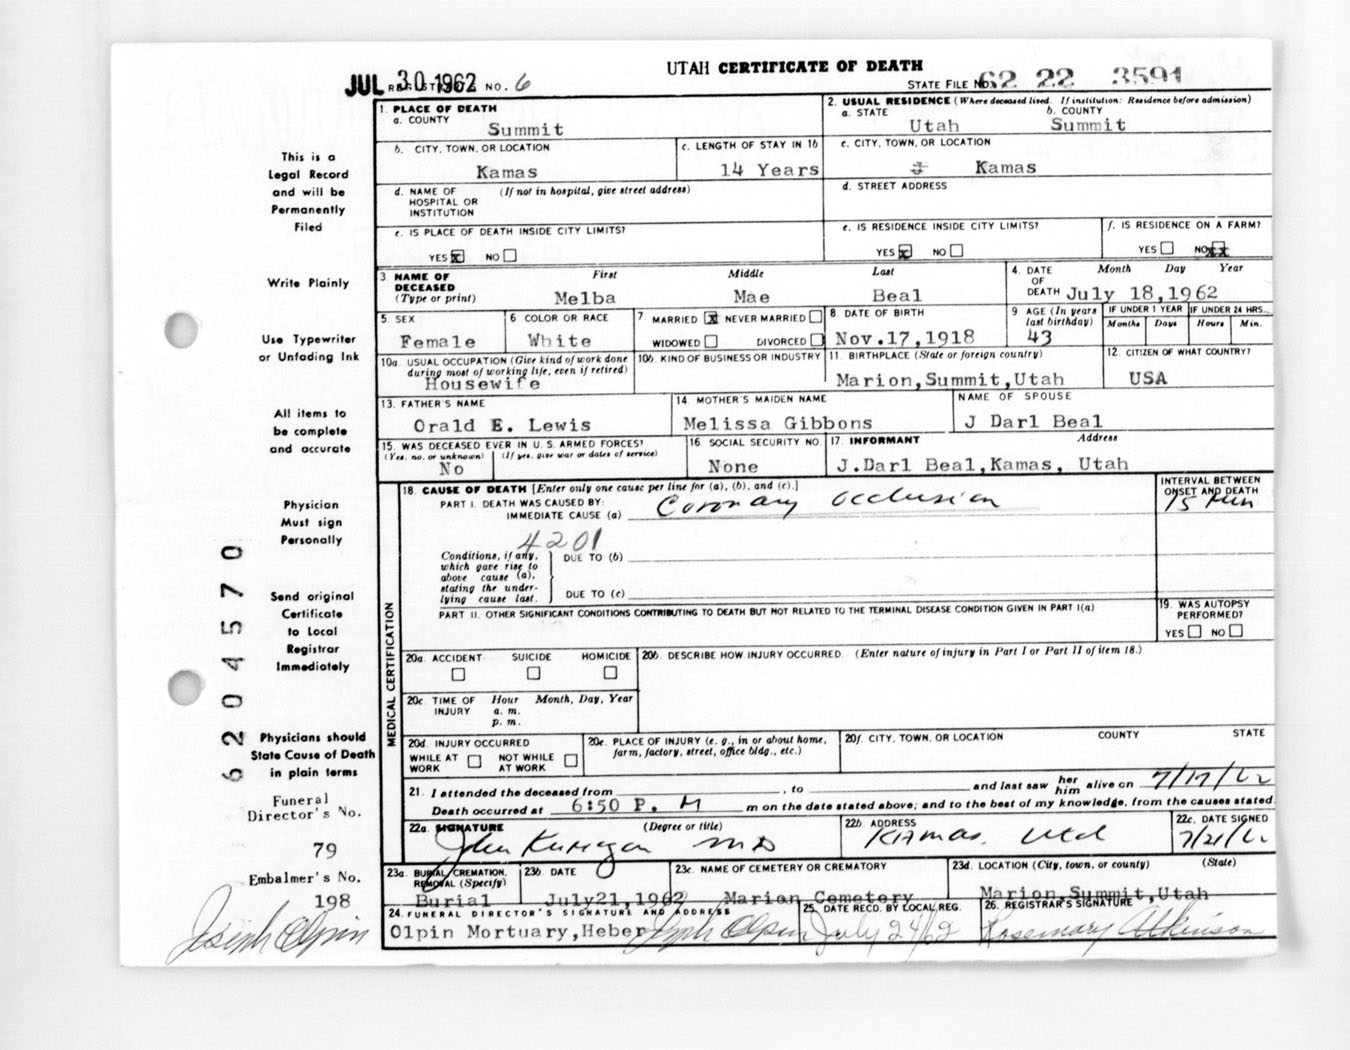 UTAH CERTIFICATE OF DEATH
JUL 30 1962 REGISTRAR'S NO. 6
STATE FILE No. 62 22 3591
1. PLACE OF DEATH
a. COUNTY
Summit
2. USUAL RESIDENCE (Where deceased lived. If institution: Residence before admission)
a. STATE b. COUNTY
Utah Summit
b. CITY, TOWN, OR LOCATION
Kamas
c. LENGTH OF STAY IN 1b
14 Years
c. CITY, TOWN, OR LOCATION
Kamas
d. NAME OF (If not in hospital, give street address)
HOSPITAL OR
INSTITUTION
d. STREET ADDRESS
e. IS PLACE OF DEATH INSIDE CITY LIMITS?
YES x NO
e. IS RESIDENCE INSIDE CITY LIMITS?
YES x NO
f. IS RESIDENCE ON A FARM?
YES NO xx
3 NAME OF DECEASED (Type or print)
First Middle Last
Melba Mae Beal
4. DATE OF DEATH Month Day Year
July 18,1962
5. SEX
Female
6 COLOR OR RACE
White
7 MARRIED x NEVER MARRIED
WIDOWED DIVORCED
8. DATE OF BIRTH
Nov.17,1918
9 AGE (In years last birthday)
43
IF UNDER 1 YEAR IF UNDER 24 HRS.
Months Days Hours Min.
10a. USUAL OCCUPATION (Give kind of work done
during most of working life, even if retired)
Housewife
10b. KIND OF BUSINESS OR INDUSTRY
11. BIRTHPLACE (State or foreign country)
Marion,Summit,Utah
12. CITIZEN OF WHAT COUNTRY?
USA
13. FATHER'S NAME
Orald E. Lewis
14 MOTHER'S MAIDEN NAME
Melissa Gibbons
NAME OF SPOUSE
J Darl Beal
15. WAS DECEASED EVER IN U. S. ARMED FORCES?
(Yes, no, or unknown) (If yes, give war or dates of service)
No
16 SOCIAL SECURITY NO.
None
17. INFORMANT Address
J.Darl Beal,Kamas, Utah
MEDICAL CERTIFICATION
18. CAUSE OF DEATH [Enter only one cause per line for (a), (b), and (c).]
PART I. DEATH WAS CAUSED BY:
IMMEDIATE CAUSE (a) Coronary occlusion
INTERVAL BETWEEN
ONSET AND DEATH
15 Min
4201
Conditions, if any,
which gave rise to
above cause (a),
stating the under-
lying cause last.
DUE TO (b)
DUE TO (c)
PART II. OTHER SIGNIFICANT CONDITIONS CONTRIBUTING TO DEATH BUT NOT RELATED TO THE TERMINAL DISEASE CONDITION GIVEN IN PART I(a)
19. WAS AUTOPSY
PERFORMED?
YES NO
20a. ACCIDENT SUICIDE HOMICIDE
20b. DESCRIBE HOW INJURY OCCURRED. (Enter nature of injury in Part I or Part II of item 18.)
20c. TIME OF INJURY Hour Month, Day, Year
a. m.
p. m.
20d. INJURY OCCURRED
WHILE AT WORK NOT WHILE AT WORK
20e. PLACE OF INJURY (e. g., in or about home,
farm, factory, street, office bldg., etc.)
20f. CITY, TOWN, OR LOCATION COUNTY STATE
21. I attended the deceased from , to and last saw her him alive on 7/17/62
Death occurred at 6:50 P. M m on the date stated above; and to the best of my knowledge, from the causes stated.
22a. SIGNATURE (Degree or title)
John MD
22b. ADDRESS
Kamas, Utah
22c. DATE SIGNED
7/21/62
23a. BURIAL, CREMATION,
REMOVAL (Specify)
Burial
23b. DATE
July21,1962
23c. NAME OF CEMETERY OR CREMATORY
Marion Cemetery
23d. LOCATION (City, town, or county) (State)
Marion,Summit,Utah
24. FUNERAL DIRECTOR'S SIGNATURE AND ADDRESS
Olpin Mortuary,Heber Joseph Olpin
25. DATE RECD. BY LOCAL REG.
July 24/62
26. REGISTRAR'S SIGNATURE
Rosemary Atkinson
This is a
Legal Record
and will be
Permanently
Filed
Write Plainly
Use Typewriter
or Unfading Ink
All items to
be complete
and accurate
Physician
Must sign
Personally
Send original
Certificate
to Local
Registrar
Immediately
Physicians should
State Cause of Death
in plain terms
Funeral
Director's No.
79
Embalmer's No.
198
Joseph Olpin
6204570